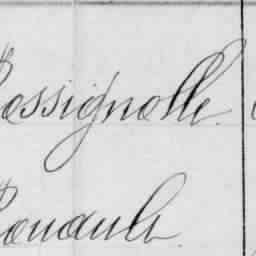 Rossignolle
Rouault